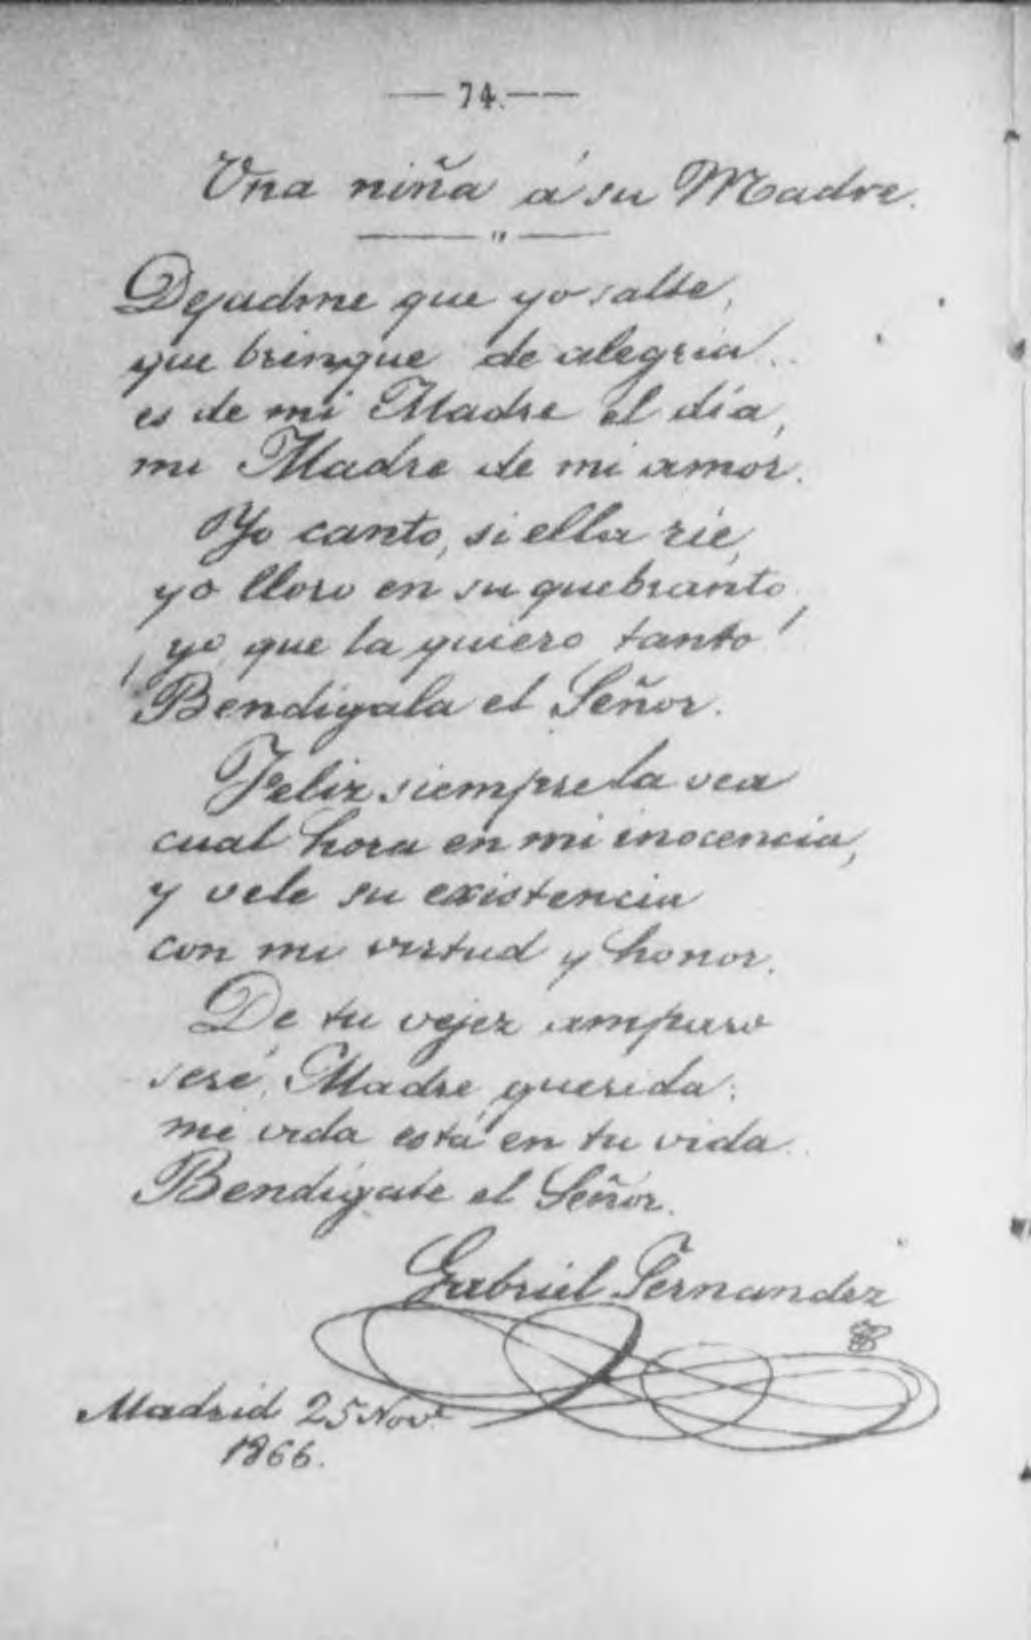 — 74. —
Una niña á su Madre.
Dejadme que yo salte,
que brinque de alegria..
es de mi Madre el día,
mi Madre de mi amor.
Yo canto, si ella rie,
yo lloro en su quebranto,
¡yo, que la quiero tanto!
Bendígala el Señor.
Feliz siempre la vea
cual hora en mi inocencia,
y vele su existencia
con mi virtud y honor.
De tu vejez amparo
seré, Madre querida:
mi vida está en tu vida..
Bendígate el Señor.
Gabriel Fernandez
Madrid 25 Nov.e
1866.